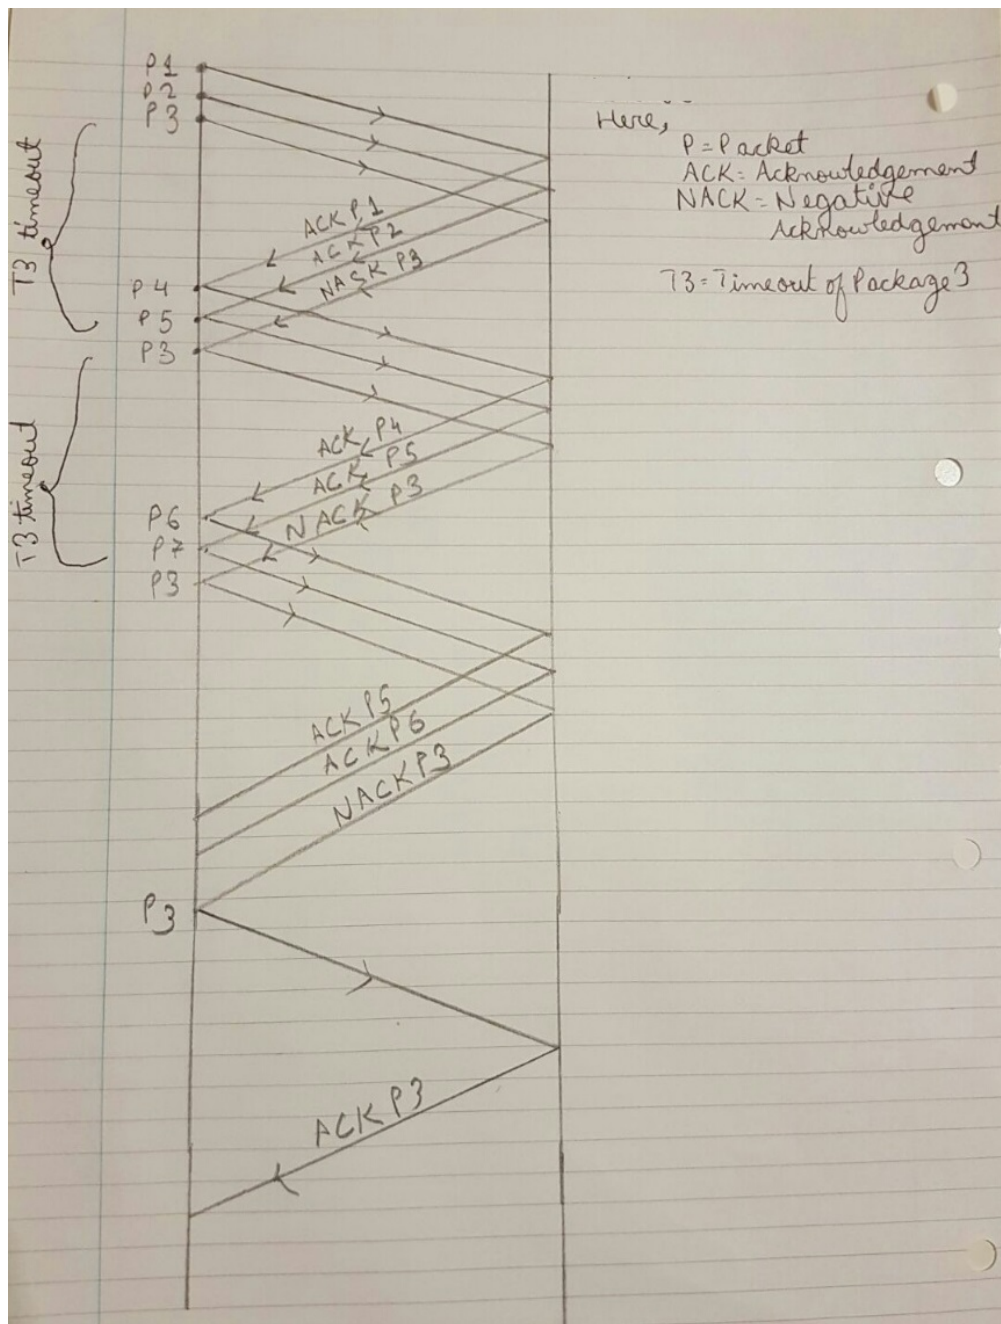 P1
P2
P3
T3 timeout
ACK P1
ACK P2
NASK P3
P4
P5
P3
T3 timeout
ACK P4
ACK P5
NACK P3
P6
P7
P3
ACK P5
ACK P6
NACK P3
P3
ACK P3
Here,
P = Packet
ACK = Acknowledgement
NACK = Negative
Acknowledgement
T3 = Timeout of Package 3